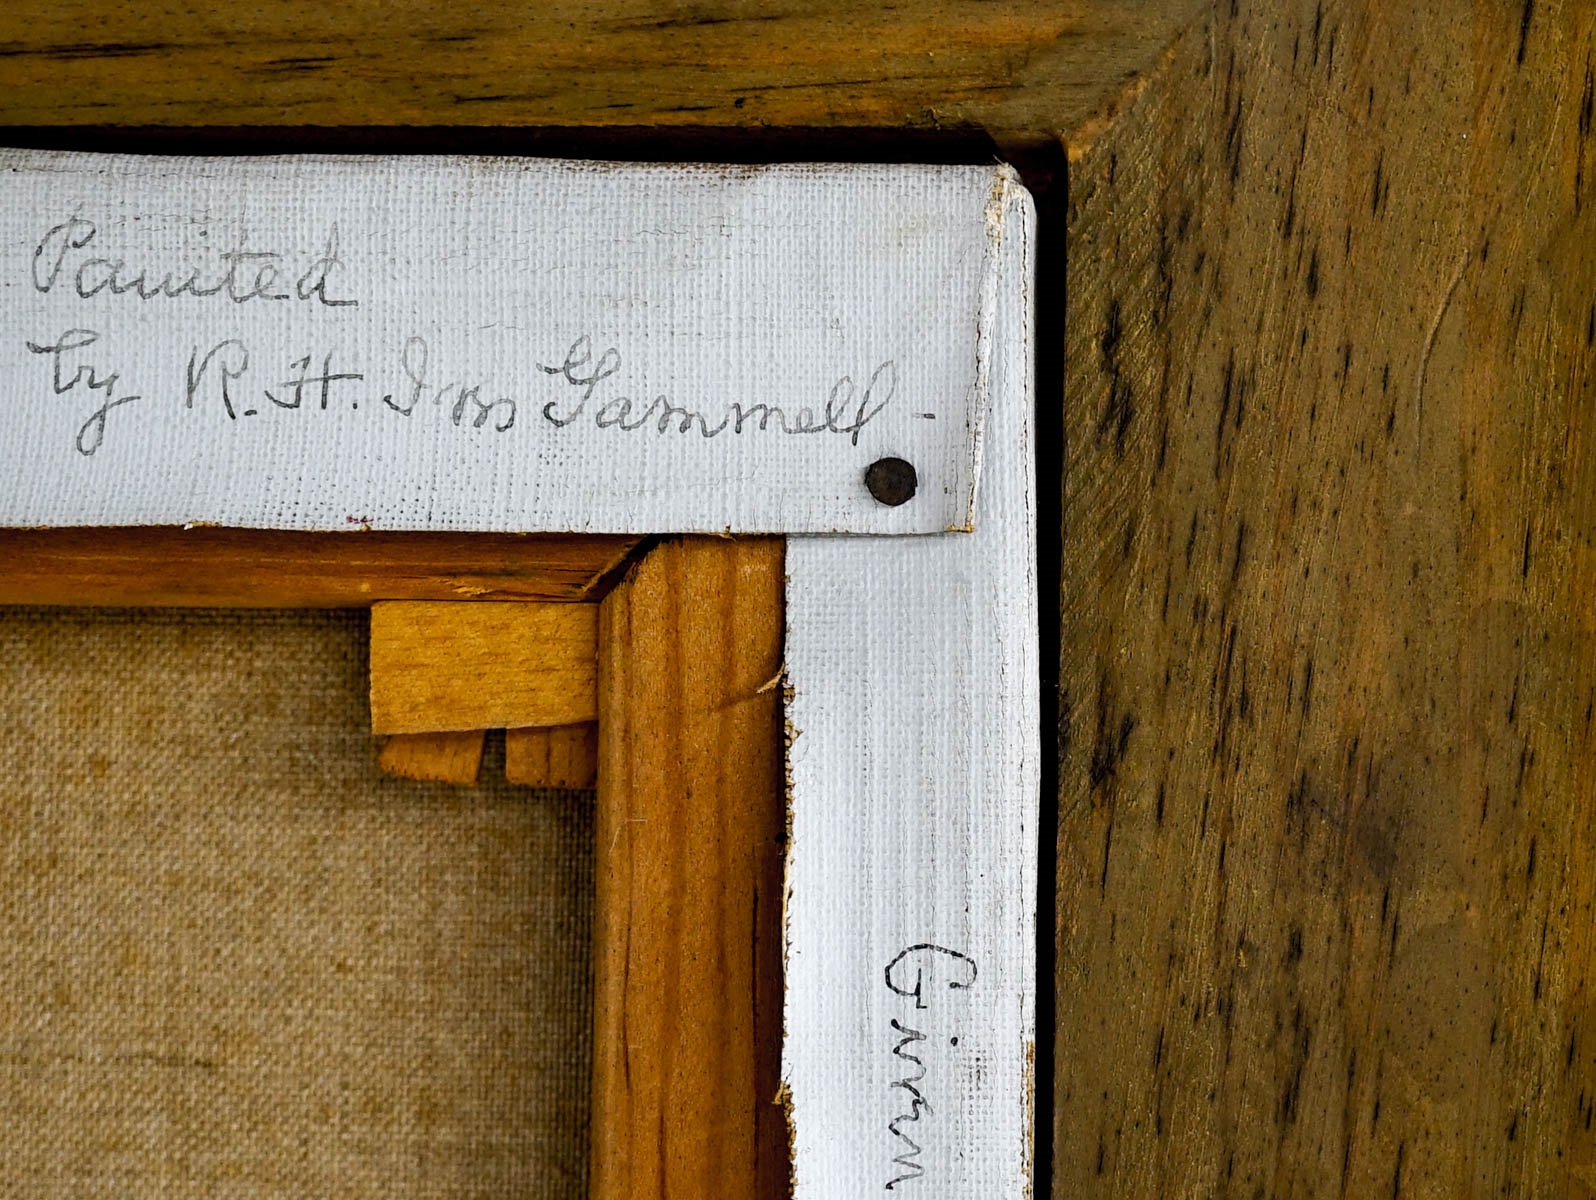 Painted
by R. H. Ives Gammell -